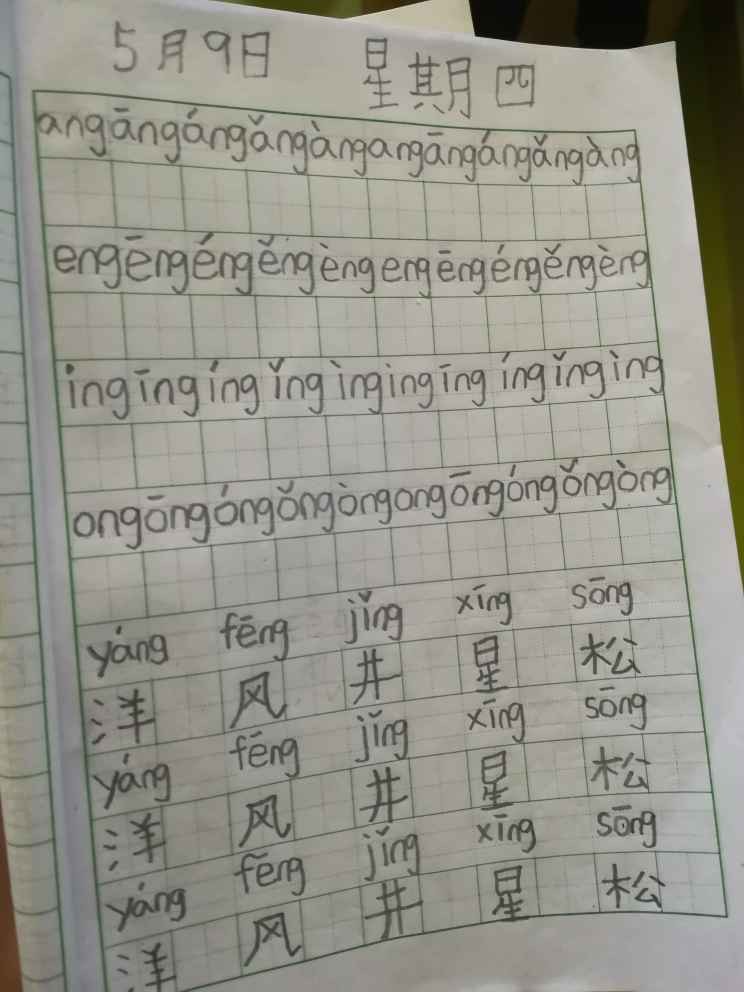 5月9日 星期四
ang āng áng ǎng àng ang āng áng ǎng àng
eng ēng éng ěng èng eng ēng éng ěng èng
ing īng íng ǐng ìng ing īng íng ǐng ìng
ong ōng óng ǒng òng ong ōng óng ǒng òng
yáng fēng jǐng xīng sōng
洋 风 井 星 松
yáng fēng jǐng xīng sōng
洋 风 井 星 松
yáng fēng jǐng xīng sōng
洋 风 井 星 松